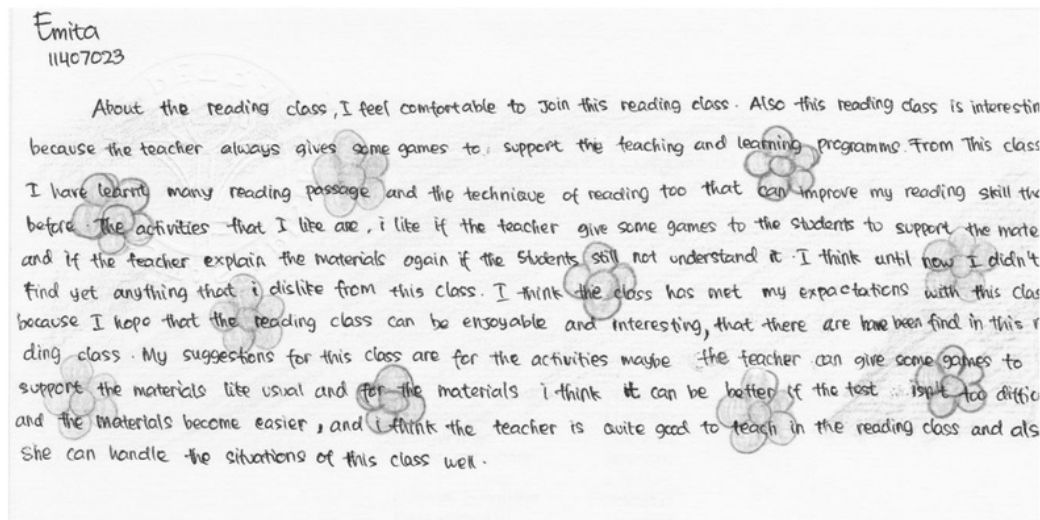 Emita
11407023
About the reading class, I feel comfortable to Join this reading class. Also this reading class is interestin
because the teacher always gives some games to support the teaching and learning programme. From This class
I have learnt many reading passage and the technique of reading too that can improve my reading skill tha
before. The activities that I like are, i like if the teacher give some games to the students to support the mate
and if the teacher explain the materials again if the students still not understand it. I think until now I didn't
find yet anything that i dislike from this class. I think the class has met my expactations with this clas
because I hope that the reading class can be enjoyable and interesting, that there are have been find in this r
ding class. My suggestions for this class are for the activities maybe the teacher can give some games to
support the materials like usual and for the materials i think it can be better if the test isn't too diffic
and the materials become easier, and i think the teacher is quite good to teach in the reading class and als
she can handle the situations of this class well.